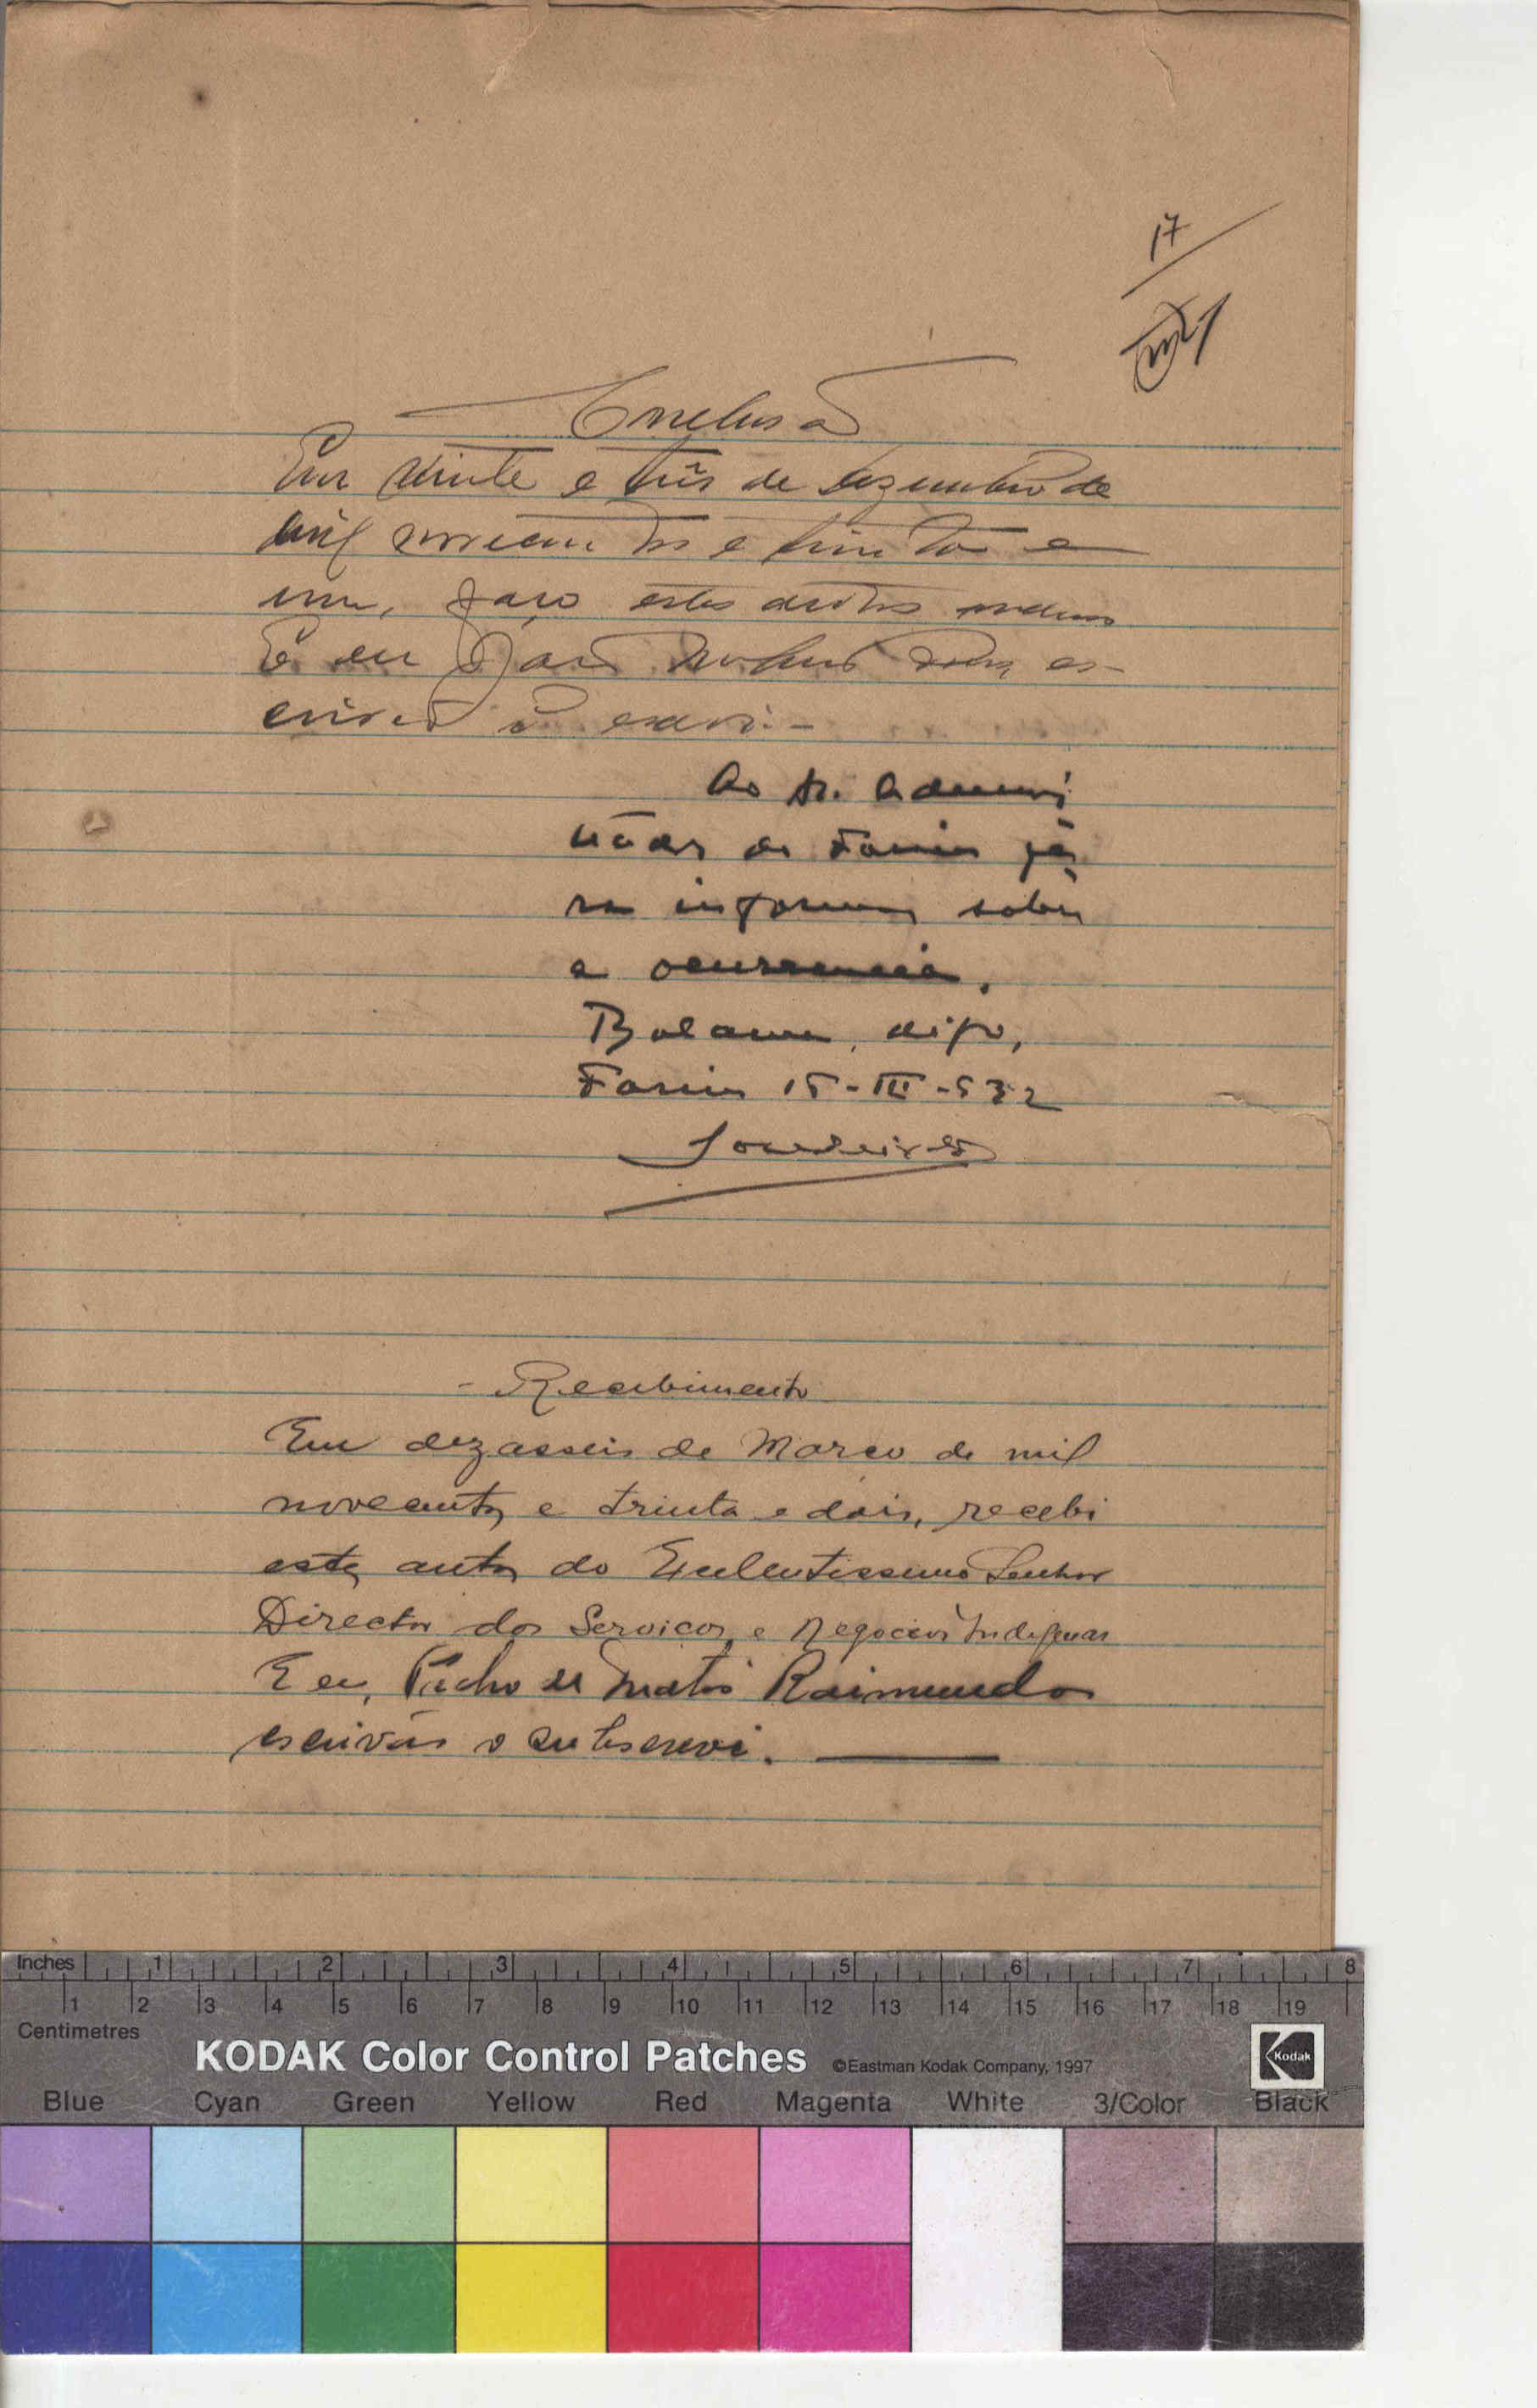 17
Conclusão
Em vinte e três de Dezembro de
mil novecentos e trinta e
um, faço estes autos conclusos
E eu João es-
crivão o escrevi. -
Ao Sr. Admini
trador de Farim pa
ra informar sobre
a ocurrencia.
Bolama, digo,
Farim 15-III-932
- Recebimento
Em dezasseis de Março de mil
novecentos e trinta e dois, recebi
estes autos do Excelentissimo Senhor
Director dos Serviços e Negocios Indigenas
E eu, Pedro de Matos Raimundo
escrivão o subscrevi.
Inches 1 2 3 4 5 6 7 8
1 2 3 4 5 6 7 8 9 10 11 12 13 14 15 16 17 18 19
Centimetres
KODAK Color Control Patches ©Eastman Kodak Company, 1997 Kodak
Blue Cyan Green Yellow Red Magenta White 3/Color Black